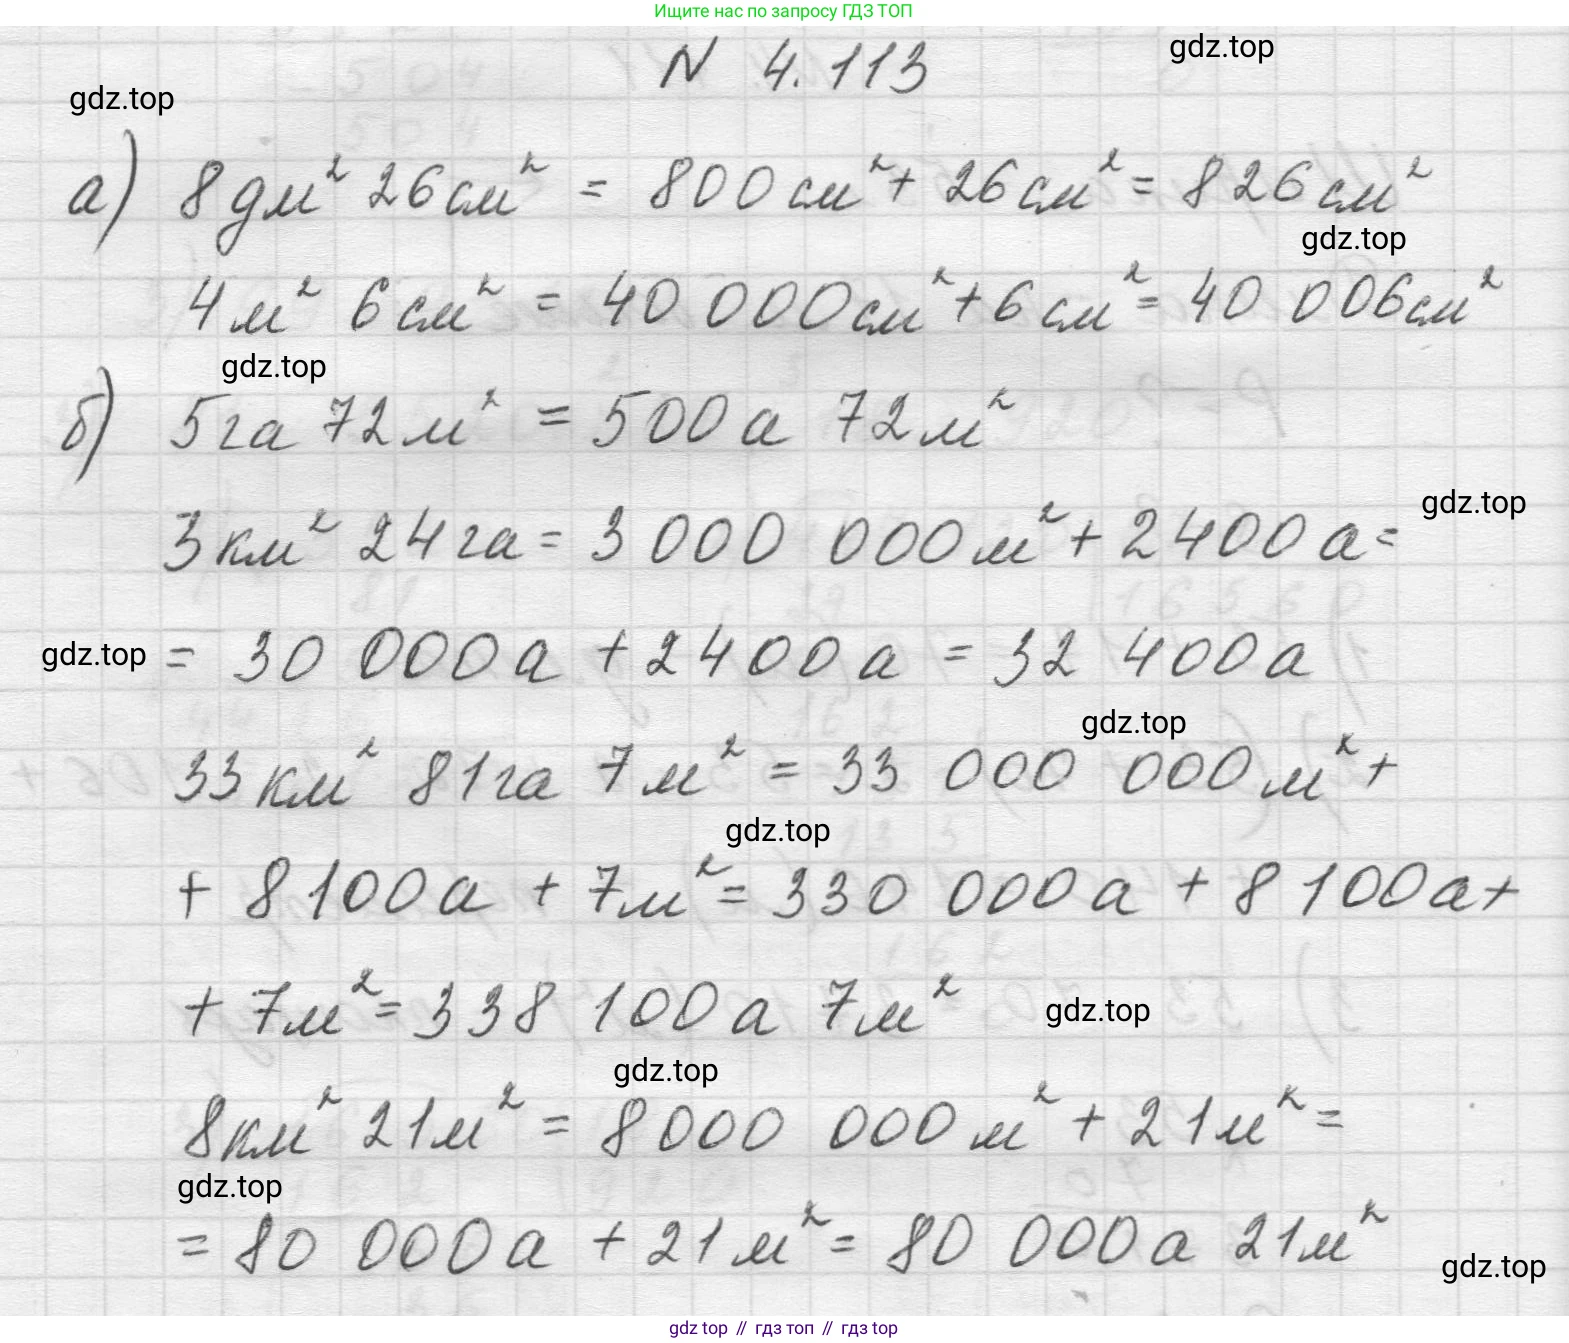 Ищите нас по запросу ГДЗ ТОП
N 4.113
gdz.top
gdz.top
а) 8дм² 26см² = 800см² + 26см² = 826см²
gdz.top
4м² 6см² = 40 000см² + 6см² = 40 006см²
gdz.top
б) 5га 72м² = 500а 72м²
gdz.top
3км² 24га = 3 000 000м² + 2400а =
gdz.top
= 30 000а + 2400а = 32 400а
gdz.top
33км² 81га 7м² = 33 000 000м² +
gdz.top
+ 8100а + 7м² = 330 000а + 8100а +
+ 7м² = 338 100а 7м²
gdz.top
gdz.top
8км² 21м² = 8000 000м² + 21м² =
gdz.top
= 80 000а + 21м² = 80 000а 21м²
gdz.top
gdz top // гдз топ // гдз top